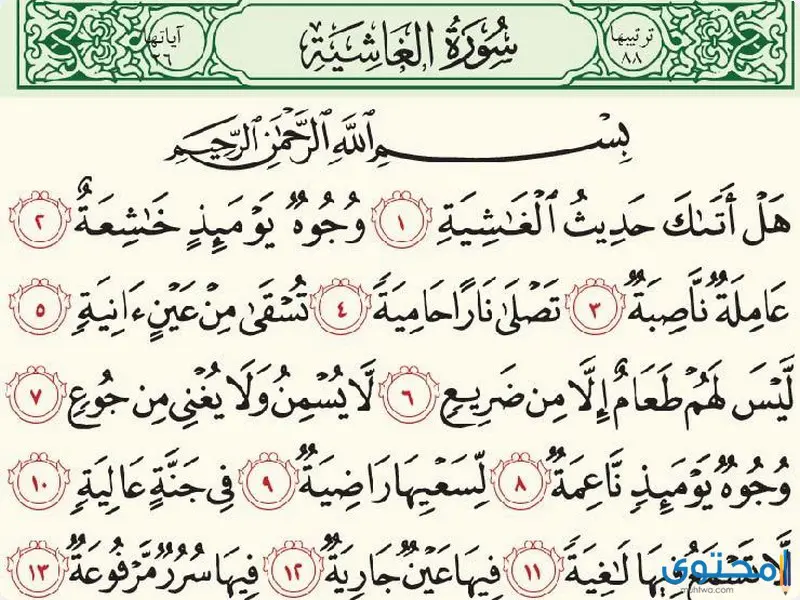 ترتيبها
٨٨
سُورَةُ الغَاشِيَةِ
آياتها
٢٦
بِسْمِ ٱللَّهِ ٱلرَّحْمَٰنِ ٱلرَّحِيمِ
هَلْ أَتَىٰكَ حَدِيثُ ٱلْغَٰشِيَةِ ١ وُجُوهٌ يَوْمَئِذٍ خَٰشِعَةٌ ٢
عَامِلَةٌ نَّاصِبَةٌ ٣ تَصْلَىٰ نَارًا حَامِيَةً ٤ تُسْقَىٰ مِنْ عَيْنٍ ءَانِيَةٍ ٥
لَّيْسَ لَهُمْ طَعَامٌ إِلَّا مِن ضَرِيعٍ ٦ لَّا يُسْمِنُ وَلَا يُغْنِى مِن جُوعٍ ٧
وُجُوهٌ يَوْمَئِذٍ نَّاعِمَةٌ ٨ لِّسَعْيِهَا رَاضِيَةٌ ٩ فِى جَنَّةٍ عَالِيَةٍ ١٠
لَّا تَسْمَعُ فِيهَا لَٰغِيَةً ١١ فِيهَا عَيْنٌ جَارِيَةٌ ١٢ فِيهَا سُرُرٌ مَّرْفُوعَةٌ ١٣
محتوى
mohtwa.com